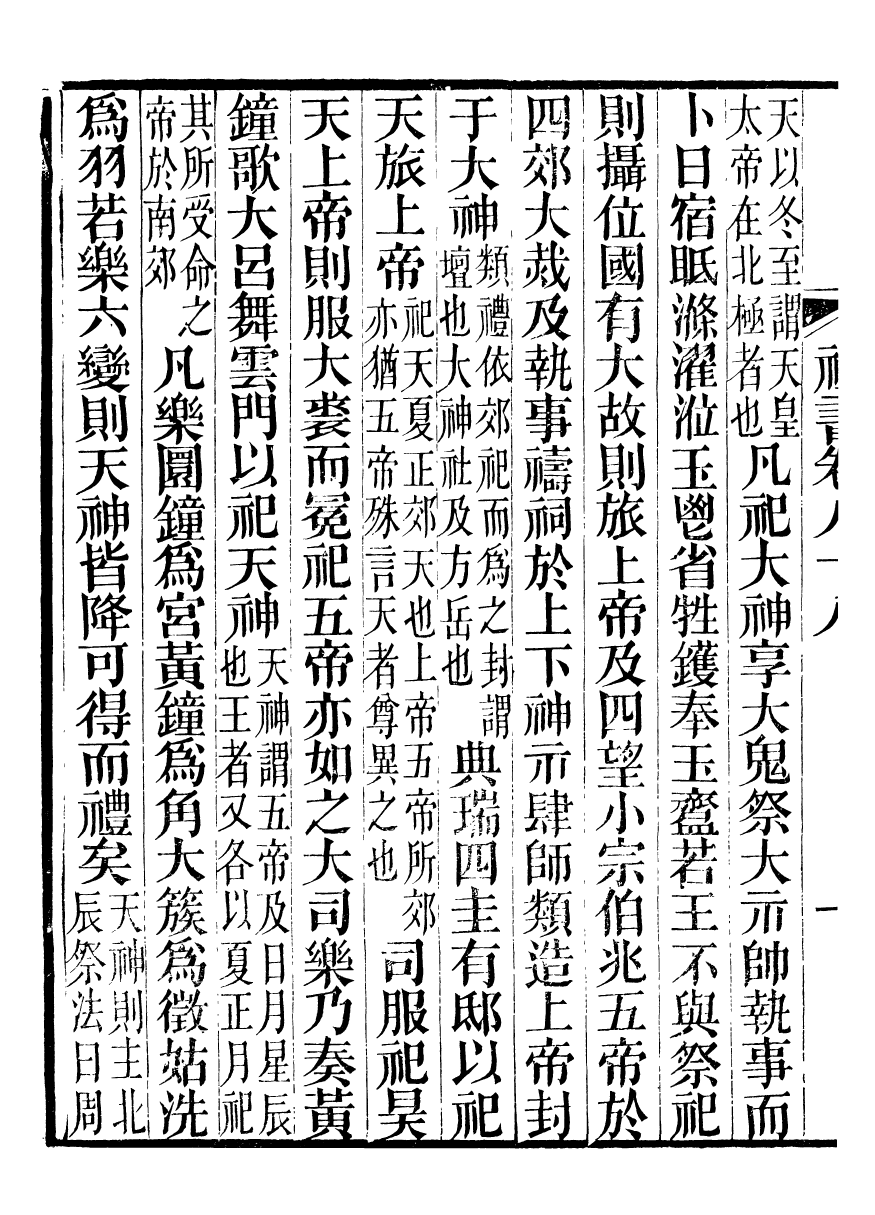 禮書卷八十八 一
天以冬至謂天皇
太帝在北極者也
凡祀大神享大鬼祭大示帥執事而
卜日宿眡滌濯涖玉鬯省牲鑊奉玉齍若王不與祭祀
則攝位國有大故則旅上帝及四望小宗伯兆五帝於
四郊大烖及執事禱祠於上下神示肆師類造上帝封
于大神
類禮依郊祀而爲之封謂
壇也大神社及方岳也
典瑞四圭有邸以祀
天旅上帝
祀天夏正郊天也上帝五帝所郊
亦猶五帝殊言天者尊異之也
司服祀昊
天上帝則服大裘而冕祀五帝亦如之大司樂乃奏黃
鐘歌大呂舞雲門以祀天神
天神謂五帝及日月星辰
也王者又各以夏正月祀
其所受命之
帝於南郊
凡樂圜鐘爲宮黃鐘爲角大簇爲徵姑洗
爲羽若樂六變則天神皆降可得而禮矣
天神則主北
辰祭法曰周